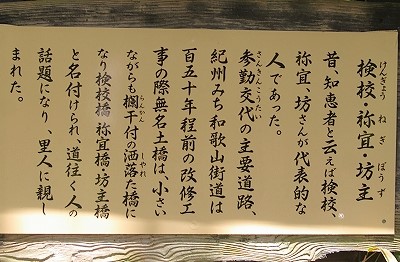 検校・祢宜・坊主
けんぎょう ねぎ ぼうず
昔、知恵者と云えば検校、
祢宜、坊さんが代表的な
人であった。
さんきんこうたい
参勤交代の主要道路、
紀州みち和歌山街道は
百五十年程前の改修工
事の際無名土橋は、小さい
らんかん しゃれ
ながらも欄干付の洒落た橋に
なり検校橋 祢宜橋・坊主橋
と名付けられ、道往く人の
話題になり、里人に親し
まれた。